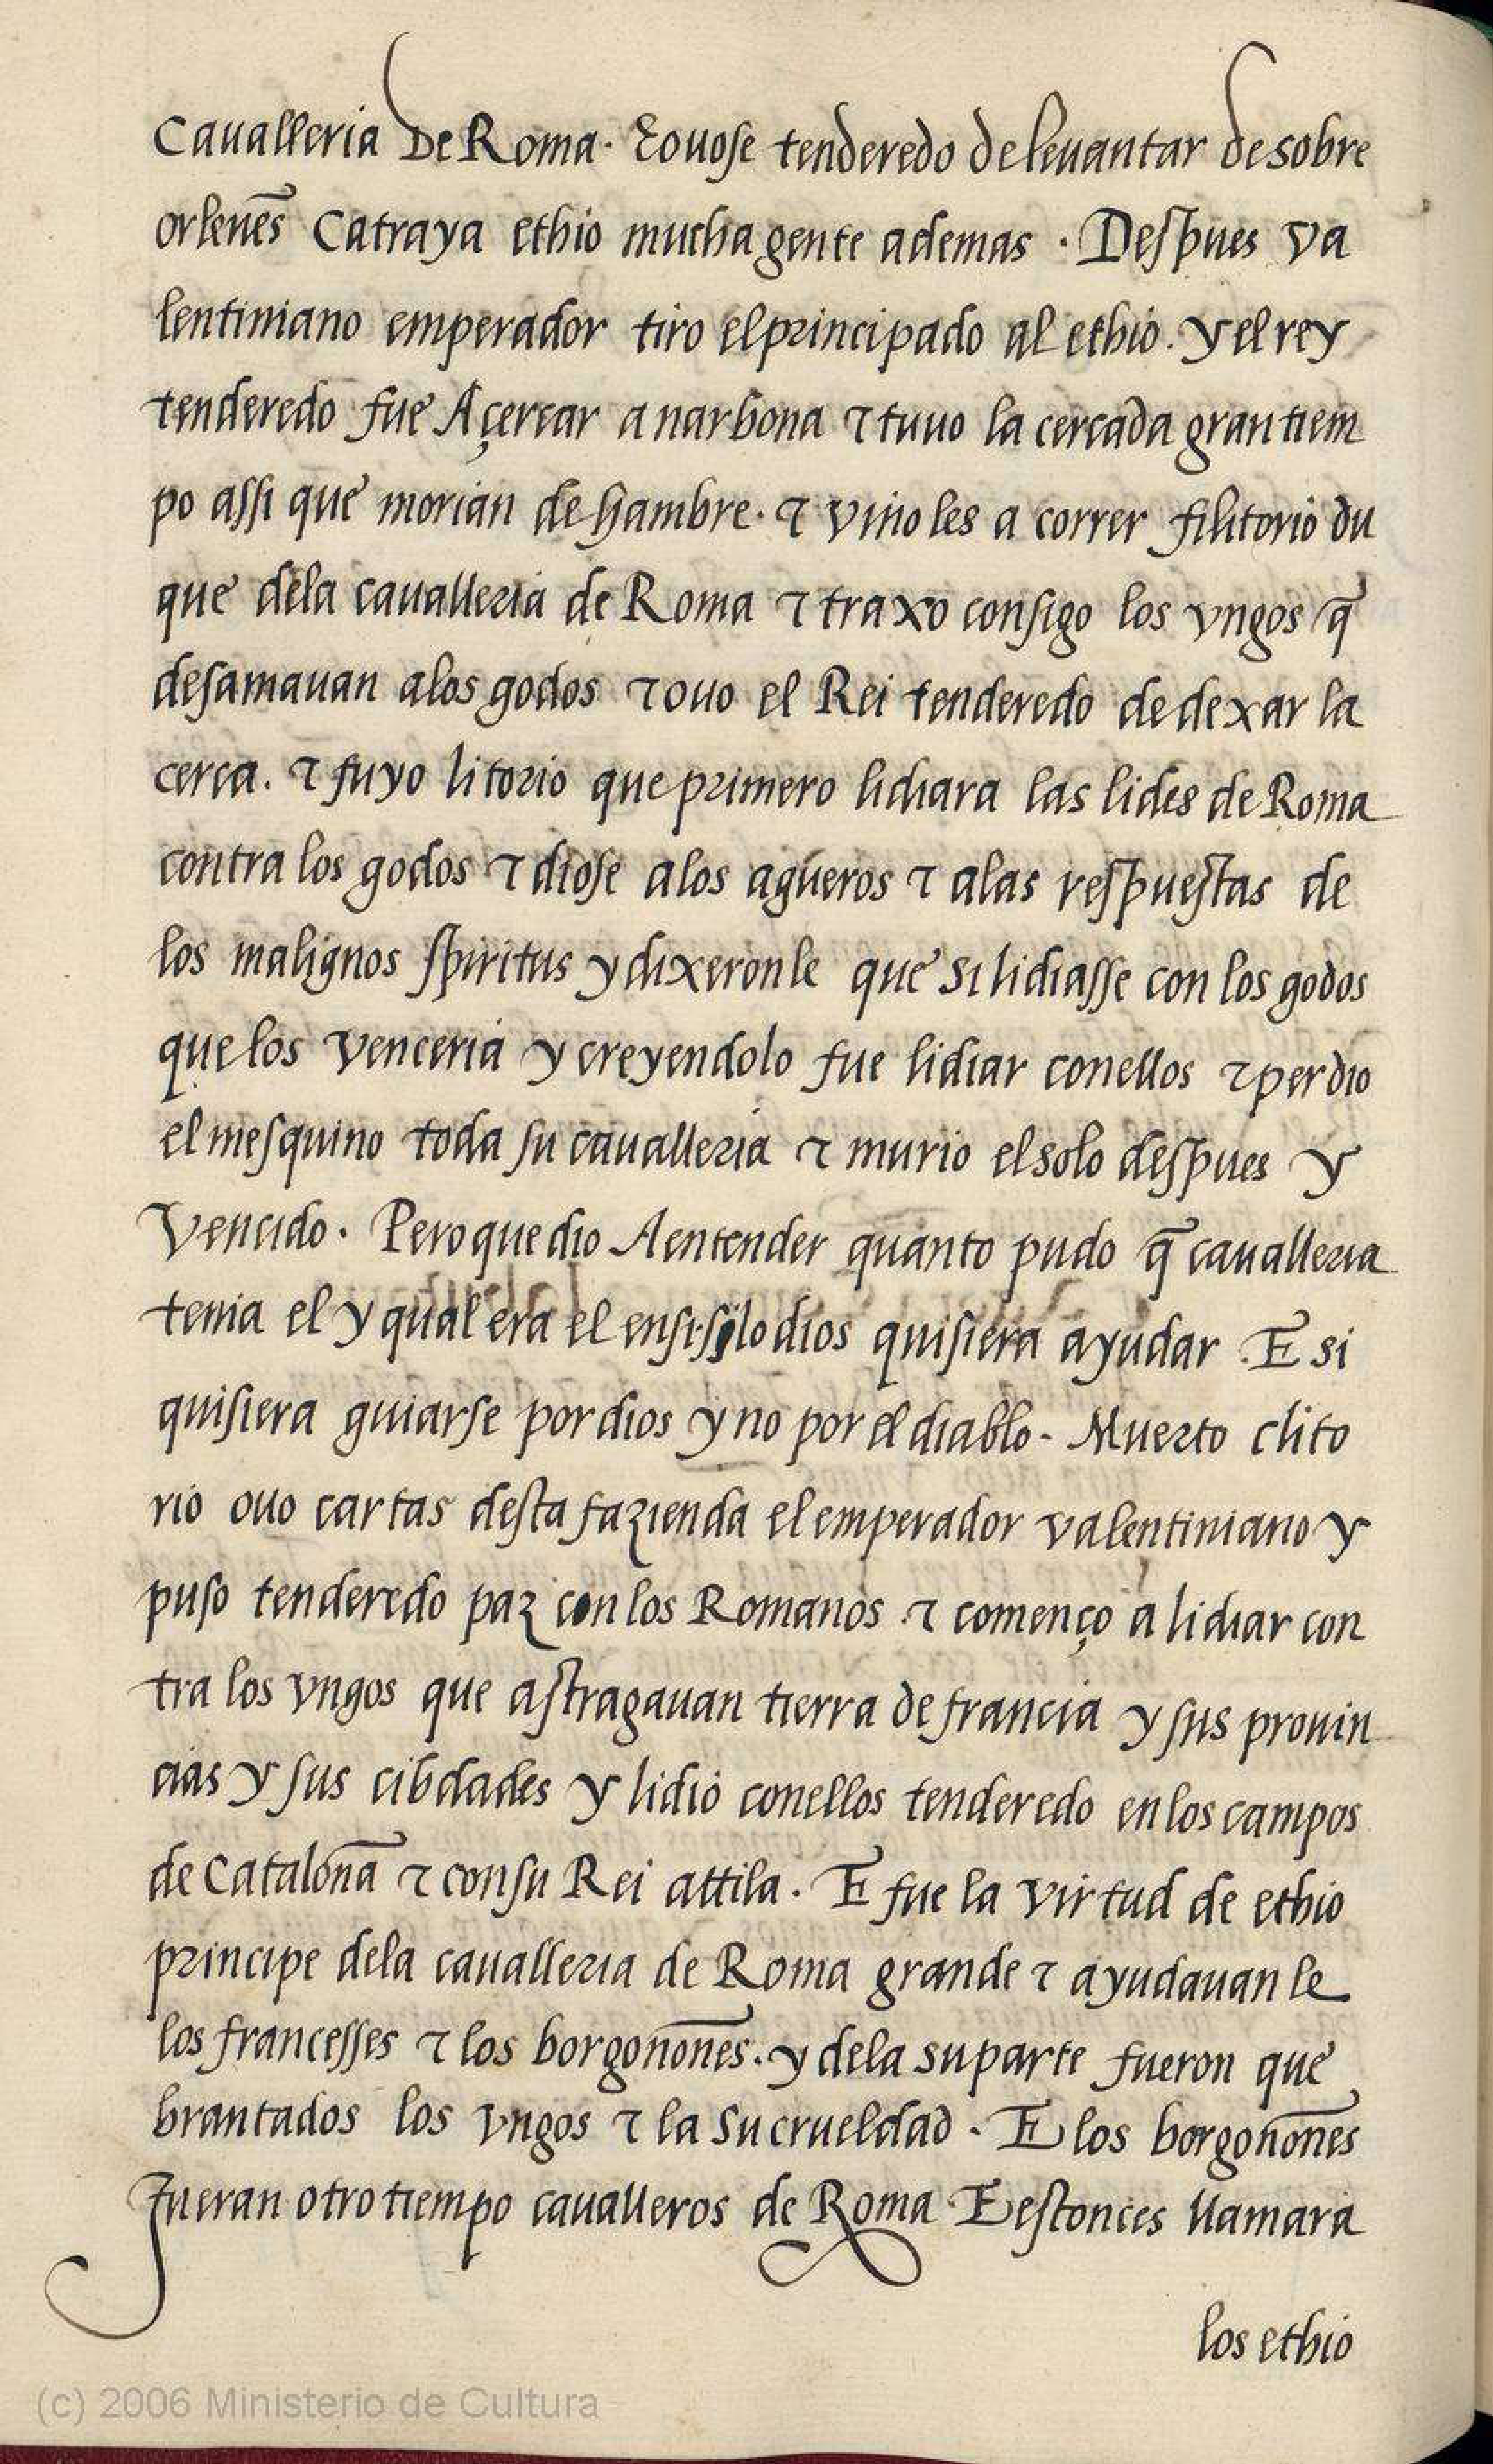 Caualleria De Roma. Et ouose tenderedo de leuantar de sobre
orlenẽs Ca traya ethio mucha gente ademas . Despues va
lentiniano emperador tiro el principado al ethio. y el rey
tenderedo fue Açercar a narbona ⁊ tuuo la cercada gran tiem
po assi que morian de hambre. ⁊ vino les a correr filitorio du
que dela caualleria de Roma ⁊ traxo consigo los vngos q̃
desamauan alos godos ⁊ ouo el Rei tenderedo de dexar la
cerca. ⁊ fuyo litorio que primero lidiara las lides de Roma
contra los godos ⁊ diose alos agueros ⁊ alas respuestas de
los malignos spiritus y dixeronle que si lidiasse con los godos
que los venceria y creyendolo fue lidiar conellos ⁊ perdio
el mesquino toda su caualleria ⁊ murio el solo despues y
vencido. Pero que dio A entender quanto pudo q̃ caualleria
tenia el y qual era el ensi si lo dios quisiera ayudar . E si
quisiera guiarse por dios y no por el diablo - Muerto clito
rio ouo cartas desta fazienda el emperador valentiniano y
puso tenderedo paz con los Romanos . ⁊ començo a lidiar con
tra los vngos que astragauan tierra de francia y sus prouin
cias y sus cibdades y lidio conellos tenderedo en los campos
de Catalona̅ ⁊ con su Rei attila . E fue la virtud de ethio
principe dela caualleria de Roma grande ⁊ ayudauan le
los francesses ⁊ los borgonõnes . y dela su parte fueron que
brantados los vngos ⁊ la su crueldad . E los borgonõnes
fueran otro tiempo caualleros de Roma . E estonces llamara
los ethio
(c) 2006 Ministerio de Cultura